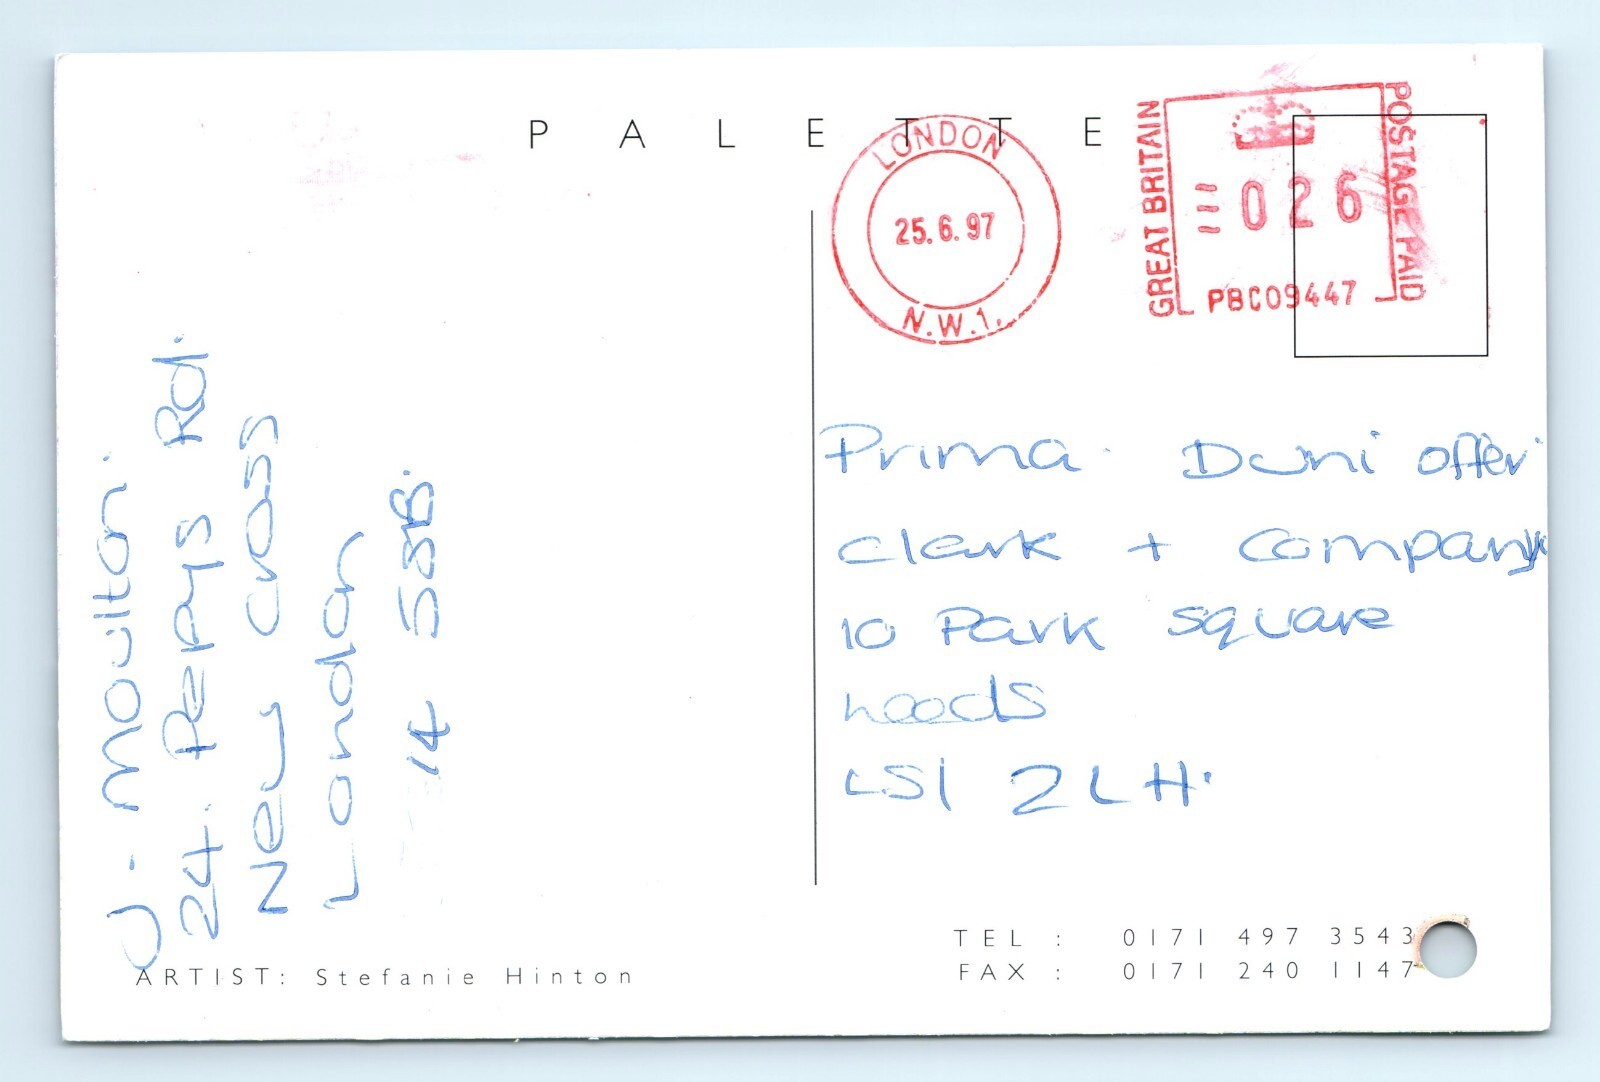 PALETTE
LONDON
25.6.97
N.W.1.
GREAT BRITAIN
026
PBC09447
POSTAGE PAID
J. Moulton.
24. Pepys Rd.
New Cross
London
14 5SB.
Prima. Duni offer
Clark + Company
10 Park Square
Leeds
LS1 2LH.
ARTIST: Stefanie Hinton
TEL : 0171 497 3543
FAX : 0171 240 1147